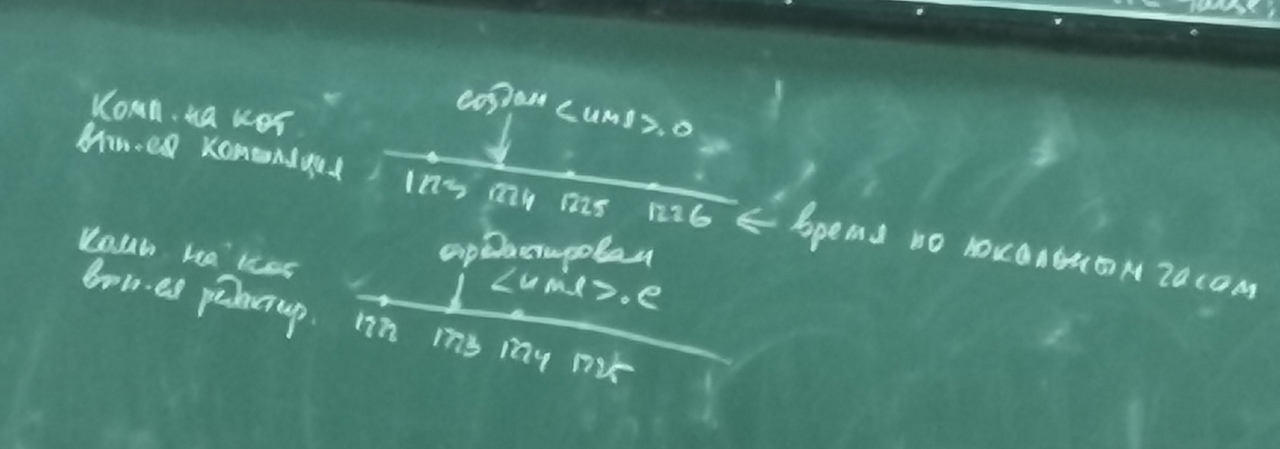 Комп. на кот.
вып-ся компиляция
создан <имя>.o
1223 1224 1225 1226
← время по локальным часам
Комп на кот
вып-ся редактир.
отредактирован
<имя>.c
1222 1223 1224 1225